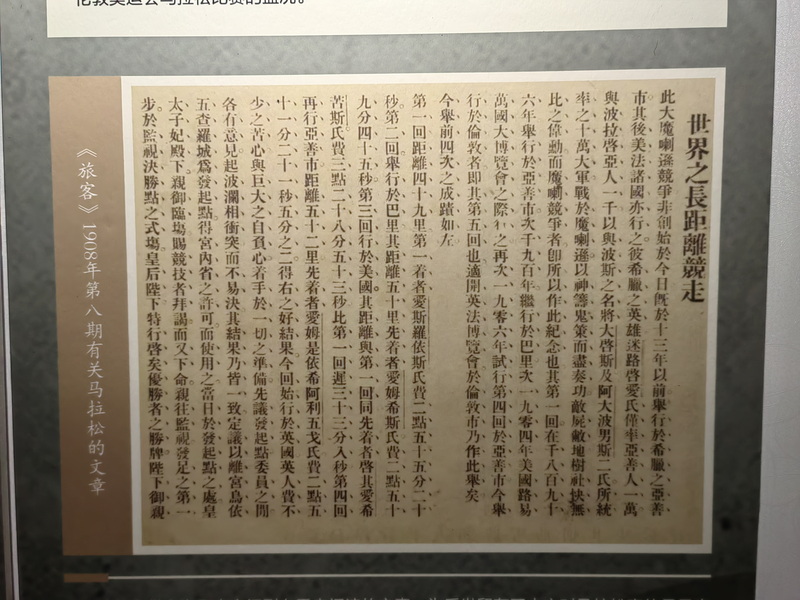 世界之長距離競走
此大魔喇遜競爭非創始於今日既於十三年以前舉行於希臘之亞善
市其後美法諸國亦行之彼希臘之英雄迷路啓愛氏僅率亞善人一萬
與波拉啓亞人一千以與波斯之名將大啓斯及阿大波男斯二氏所統
率之十萬大軍戰於魔喇遜以神籌鬼策而盡奏功敵屍敵地樹社快無
比之偉勳而魔喇競爭者卽所以作此紀念也其第一回在千八百九十
六年舉行於亞善市次千九百年繼行於巴里次一九零四年美國路易
萬國大博覽會之際行之再次一九零六年試行第四回於亞善市今舉
行於倫敦者即其第五回也適開英法博覽會於倫敦市乃作此舉矣
今舉前四次之成蹟如左
第一回距離四十九里第一着者愛斯羅依斯氏費二點五十五分二十
秒第二回舉行於巴里其距離五十里先着者愛姆希斯氏費二點五十
九分四十五秒第三回行於美國其距離與第一回同先着者啓其愛希
苦斯氏費三點二十八分五十三秒比第一回遲三十三分入秒第四回
再行亞善市距離五十二里先着者愛姆是依希阿利五戈氏費二點五
十一分二十一秒五分之二得右之好結果今回始行於英國英人費不
少之苦心與巨大之自負心着手於一切之準備先議發起點委員之間
各有意見起波瀾相衝突而不易決其結果乃皆一致定議以離宮烏依
五查羅城爲發起點得宮內省之許可而使用之當日於發起點之處皇
太子妃殿下親御臨場賜競技者拜謁而又下命親往監視發足之第一
步於監視決勝點之式場皇后陛下特行啓矣優勝者之勝牌陛下御親
《旅客》1908年第八期有关马拉松的文章